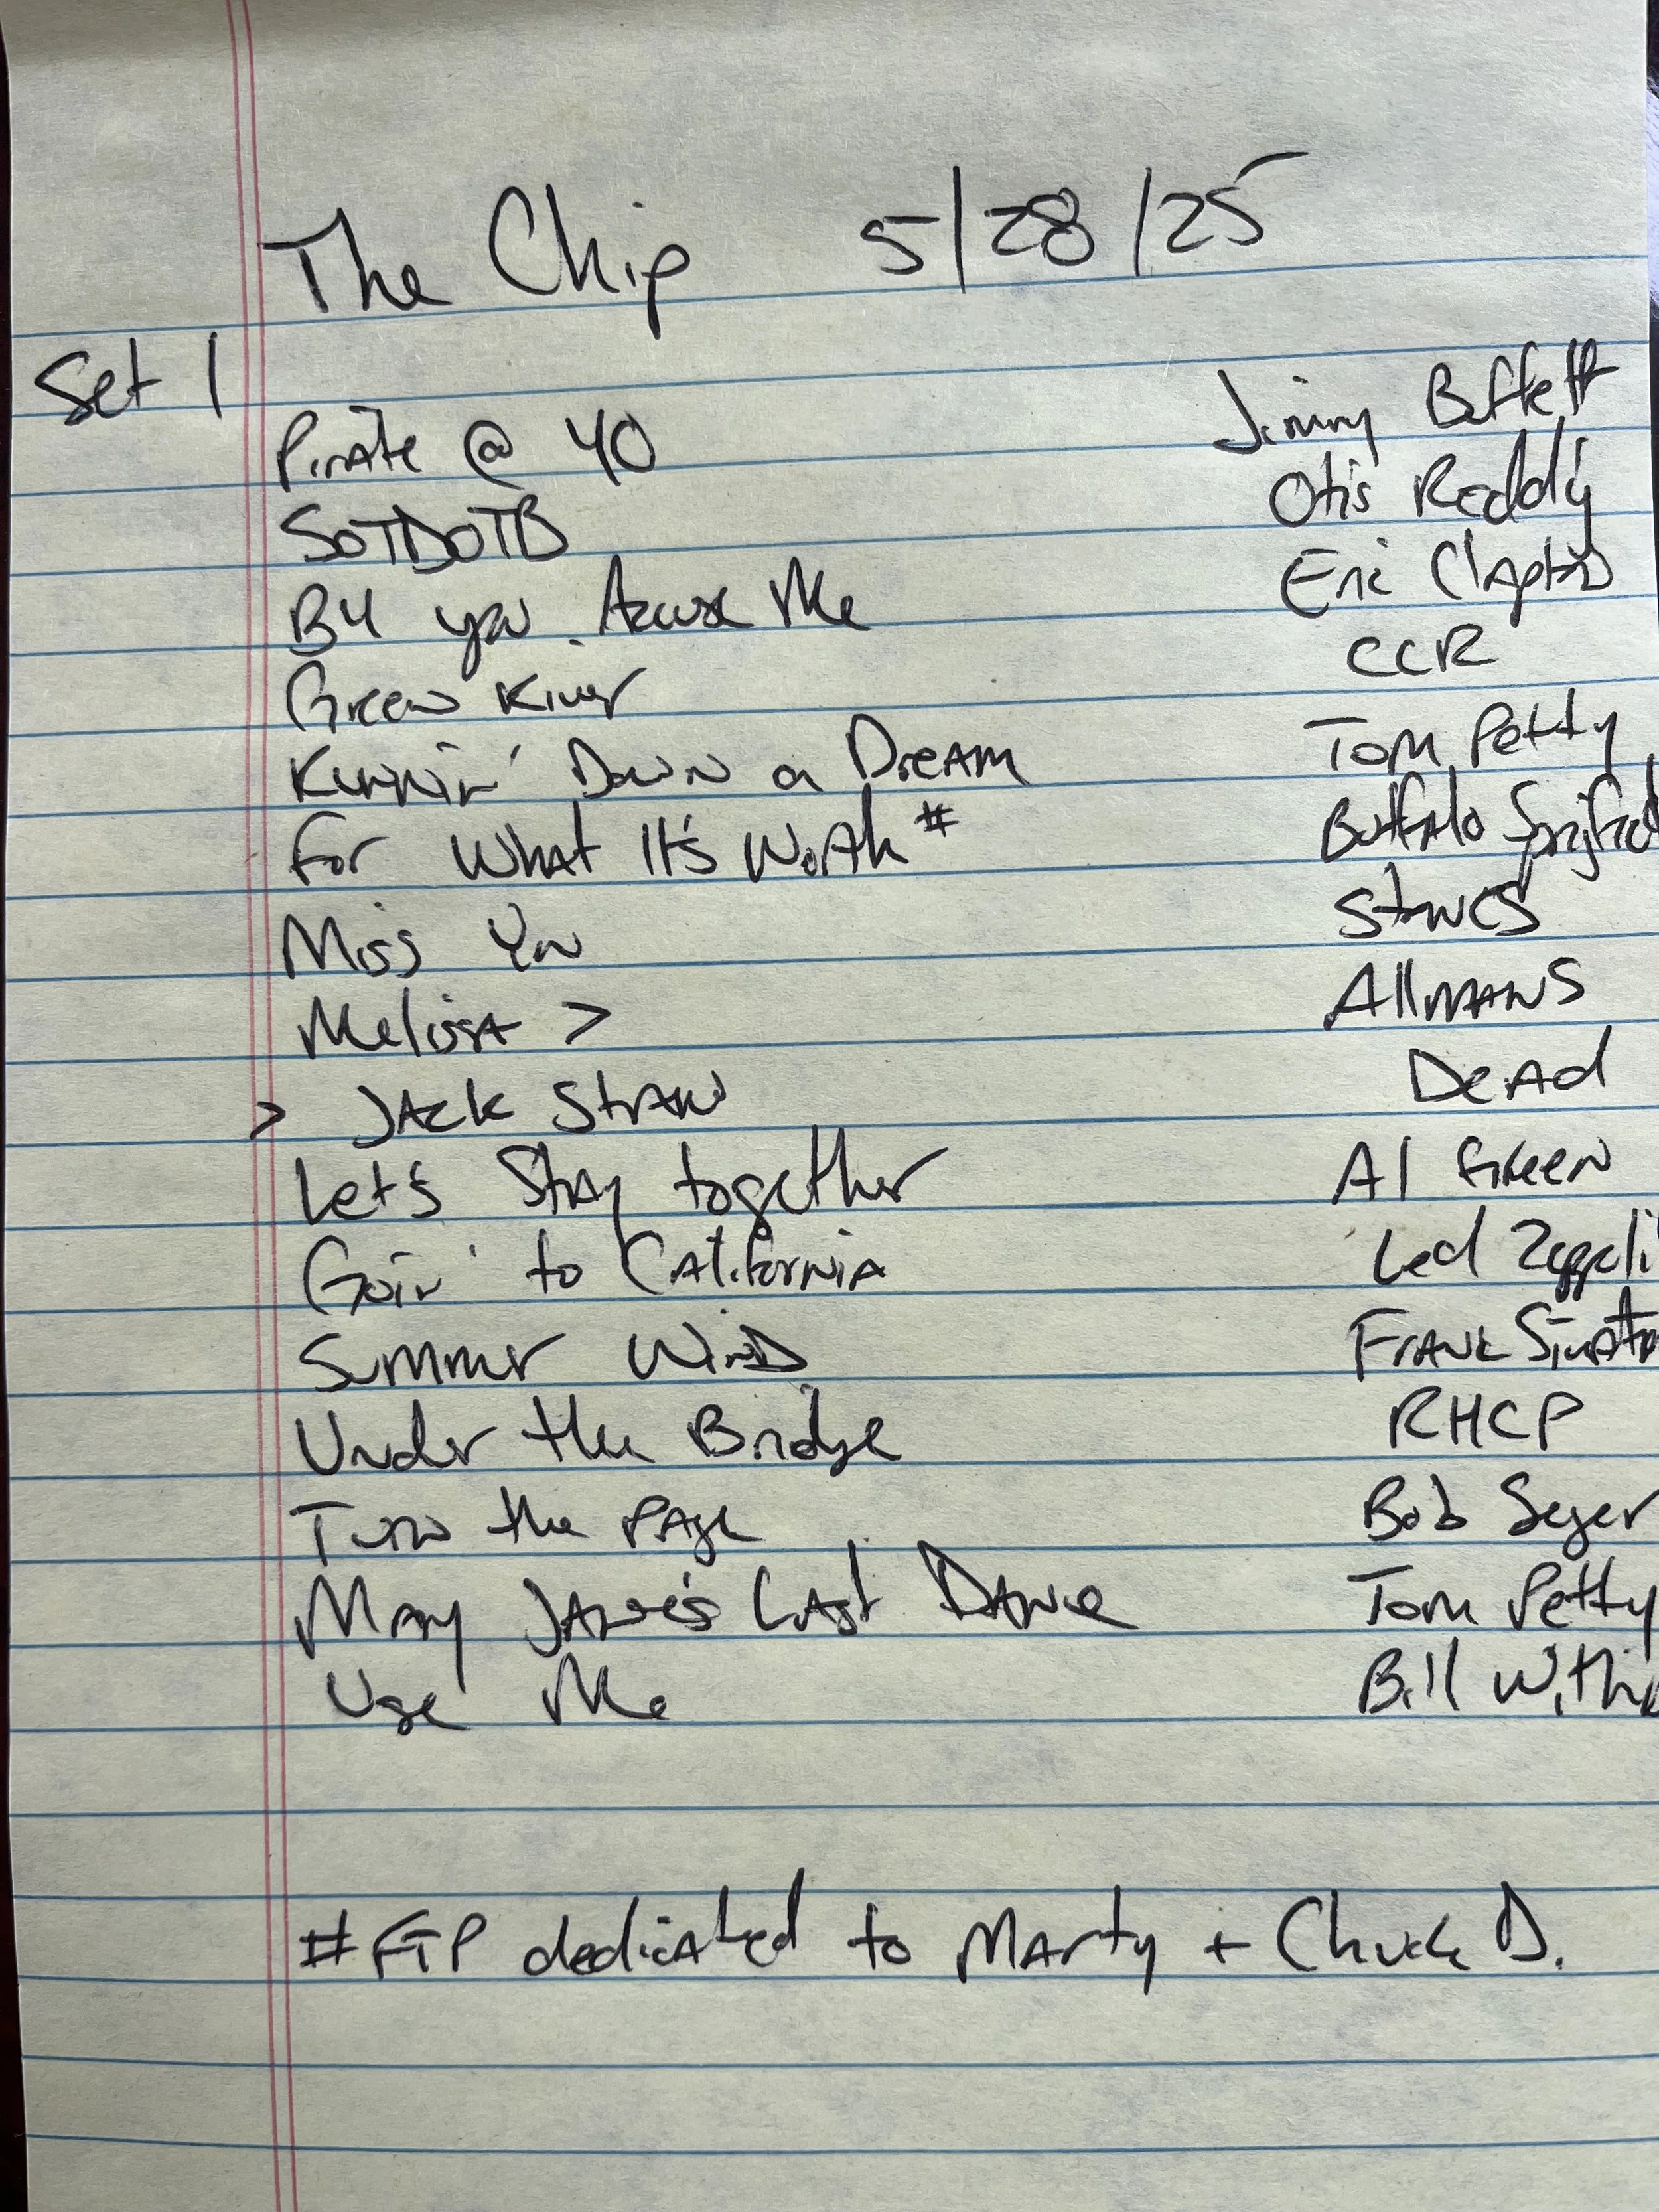 The Chip 5/28/25
Set 1
Pirate @ 40 Jimmy Buffett
SOTDOTB Otis Redding
B4 you Accuse Me Eric Clapton
Green River CCR
Runnin' Down a Dream Tom Petty
For What It's Worth # Buffalo Springfield
Miss You Stones
Melissa > Allmans
> Jack Straw Dead
Let's Stay together Al Green
Goin' to California Led Zeppeli
Summer Wind Frank Sinatra
Under the Bridge RHCP
Turn the Page Bob Seger
Mary Jane's Last Dance Tom Petty
Use Me Bill Withe
# FTP dedicated to Marty + Chuck D.